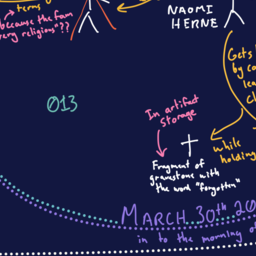 terms of
because the fam
very religious"??
NAOMI
HERNE
Gets
by co
lea
013
In artifact
storage
while
holding
Fragment of
gravestone with
the word "forgotten"
MARCH 30th 20
in to the morning of